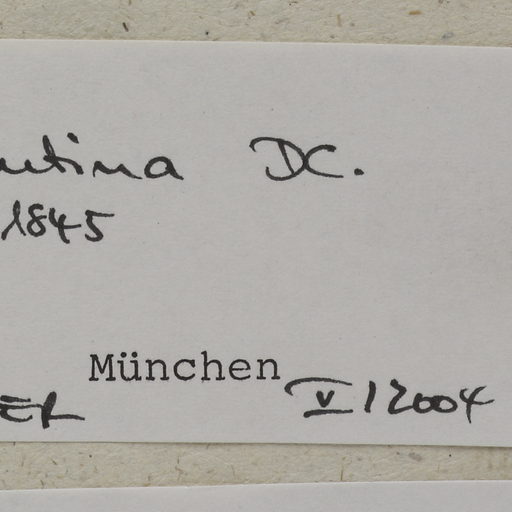 ntina DC.
1845
München
ER V/2004